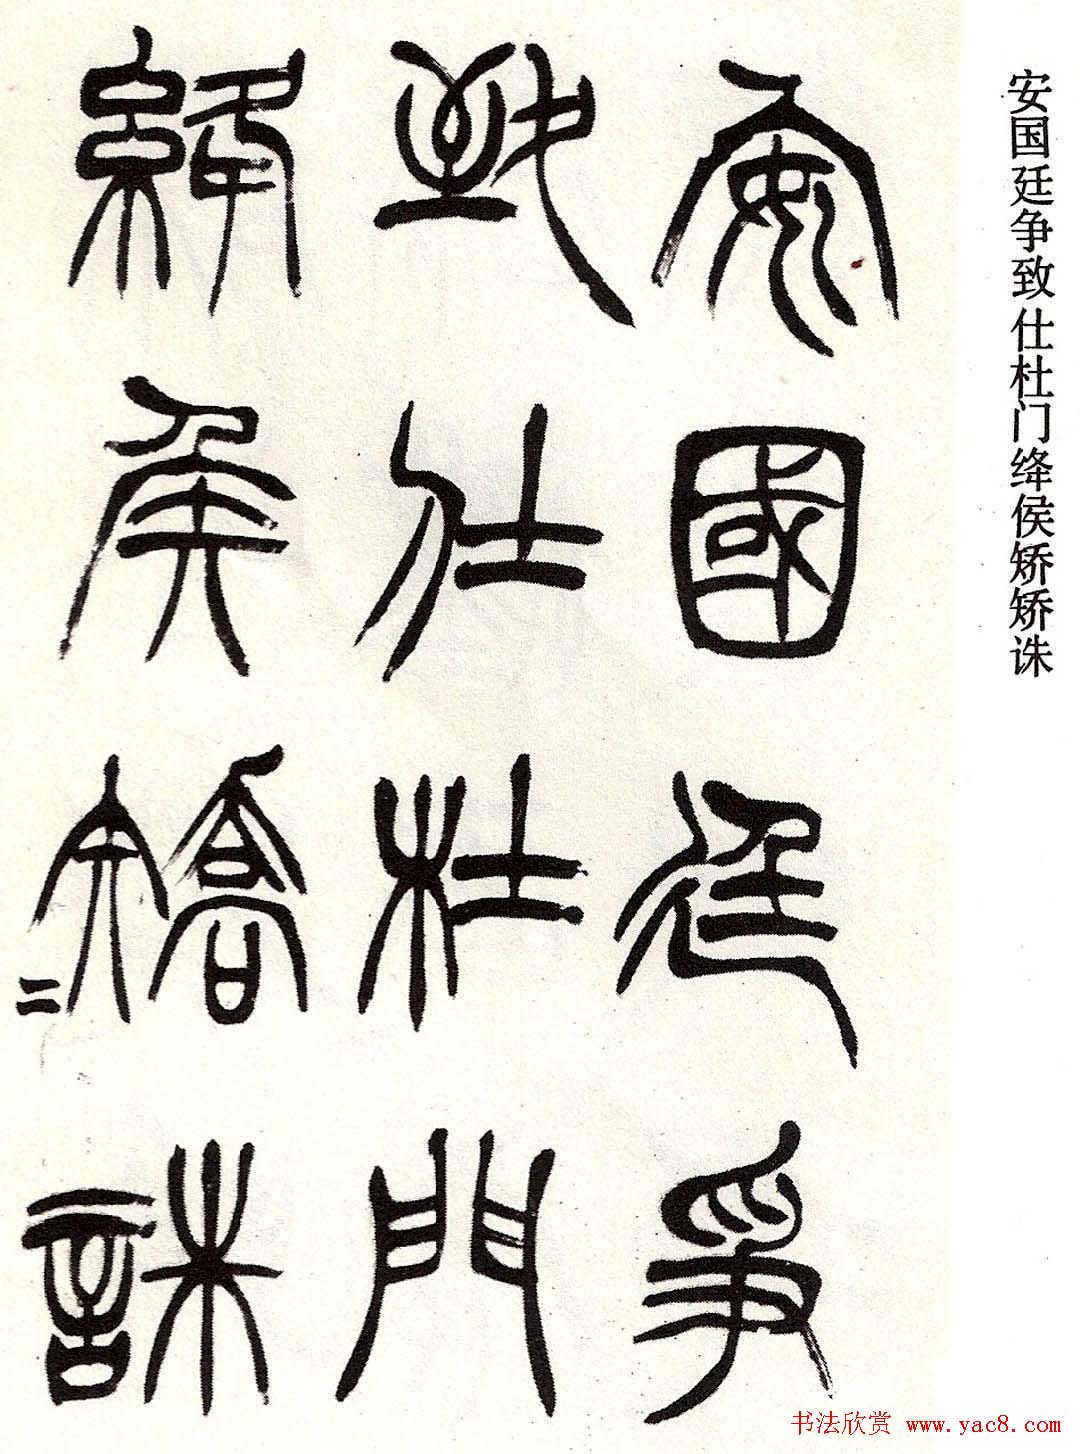 安国廷争致仕杜门绛侯矫矫诛
安國廷爭
致仕杜門
絳侯矯二
誅
书法欣赏 www.yac8.com